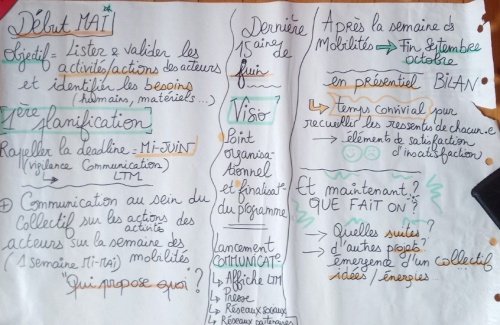 Début MAI
Objectif = Lister & valider les
activités/actions des acteurs
et identifier les besoins
humains, matériels...)
1ère planification
Rappeler la deadline = MI-JUIN
(vigilance Communication)
→ LTM
+ Communication au sein du
Collectif sur les actions des
activité
acteurs sur la semaine des
mobilités
(1 semaine MI-MAI)
"Qui propose quoi"?
Dernière
15aine
de
Juin
Visio
Point
organisa-
tionnel
et finalisat°
du programme
Lancement
COMMUNICAT°
↳ Affiche LTM
↳ Presse
↳ Réseaux sociaux
↳ Réseaux partenaires
Après la semaine des
mobilités → Fin Septembre
octobre
en présentiel BILAN
↳ temps convivial pour
recueillir les ressentis de chacun·e
→ éléments de satisfaction
d'insatisfaction
Et maintenant?
QUE FAIT ON?
→ Quelles suites?
→ d'autres projets?
émergence d'un collectif
idées/énergies